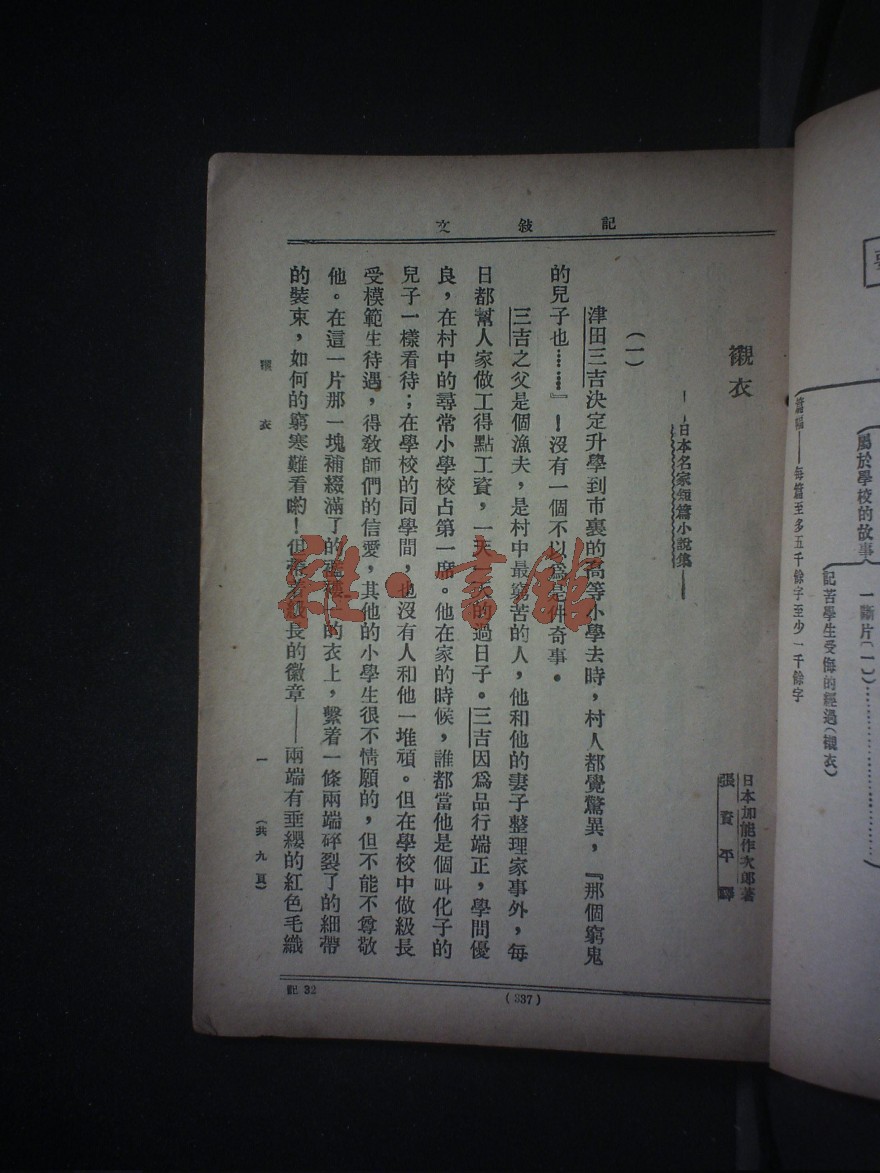 記敍文
襯衣
——日本名家短篇小說集——
日本加能作次郎著
張資平譯
(一)
津田三吉決定升學到市裏的高等小學去時，村人都覺驚異，『那個窮鬼
的兒子也……』！沒有一個不以爲是件奇事。
三吉之父是個漁夫，是村中最窮苦的人，他和他的妻子整理家事外，每
日都幫人家做工得點工資，一天一天的過日子。三吉因爲品行端正，學問優
良，在村中的尋常小學校占第一席。他在家的時候，誰都當他是個叫化子的
兒子一樣看待；在學校的同學間，也沒有人和他一堆頑。但在學校中做級長
受模範生待遇，得敎師們的信愛，其他的小學生很不情願的，但不能不尊敬
他。在這一片那一塊補綴滿了的襤褸的衣上，繫着一條兩端碎裂了的細帶
的裝束，如何的窮寒難看喲！但帶着級長的徽章——兩端有垂纓的紅色毛織
襯衣
一
(共九頁)
記 32
(337)
屬於學校的故事
一斷片(一)
記苦學生受侮的經過(襯衣)
篇幅——每篇至多五千餘字至少一千餘字
雜·書館